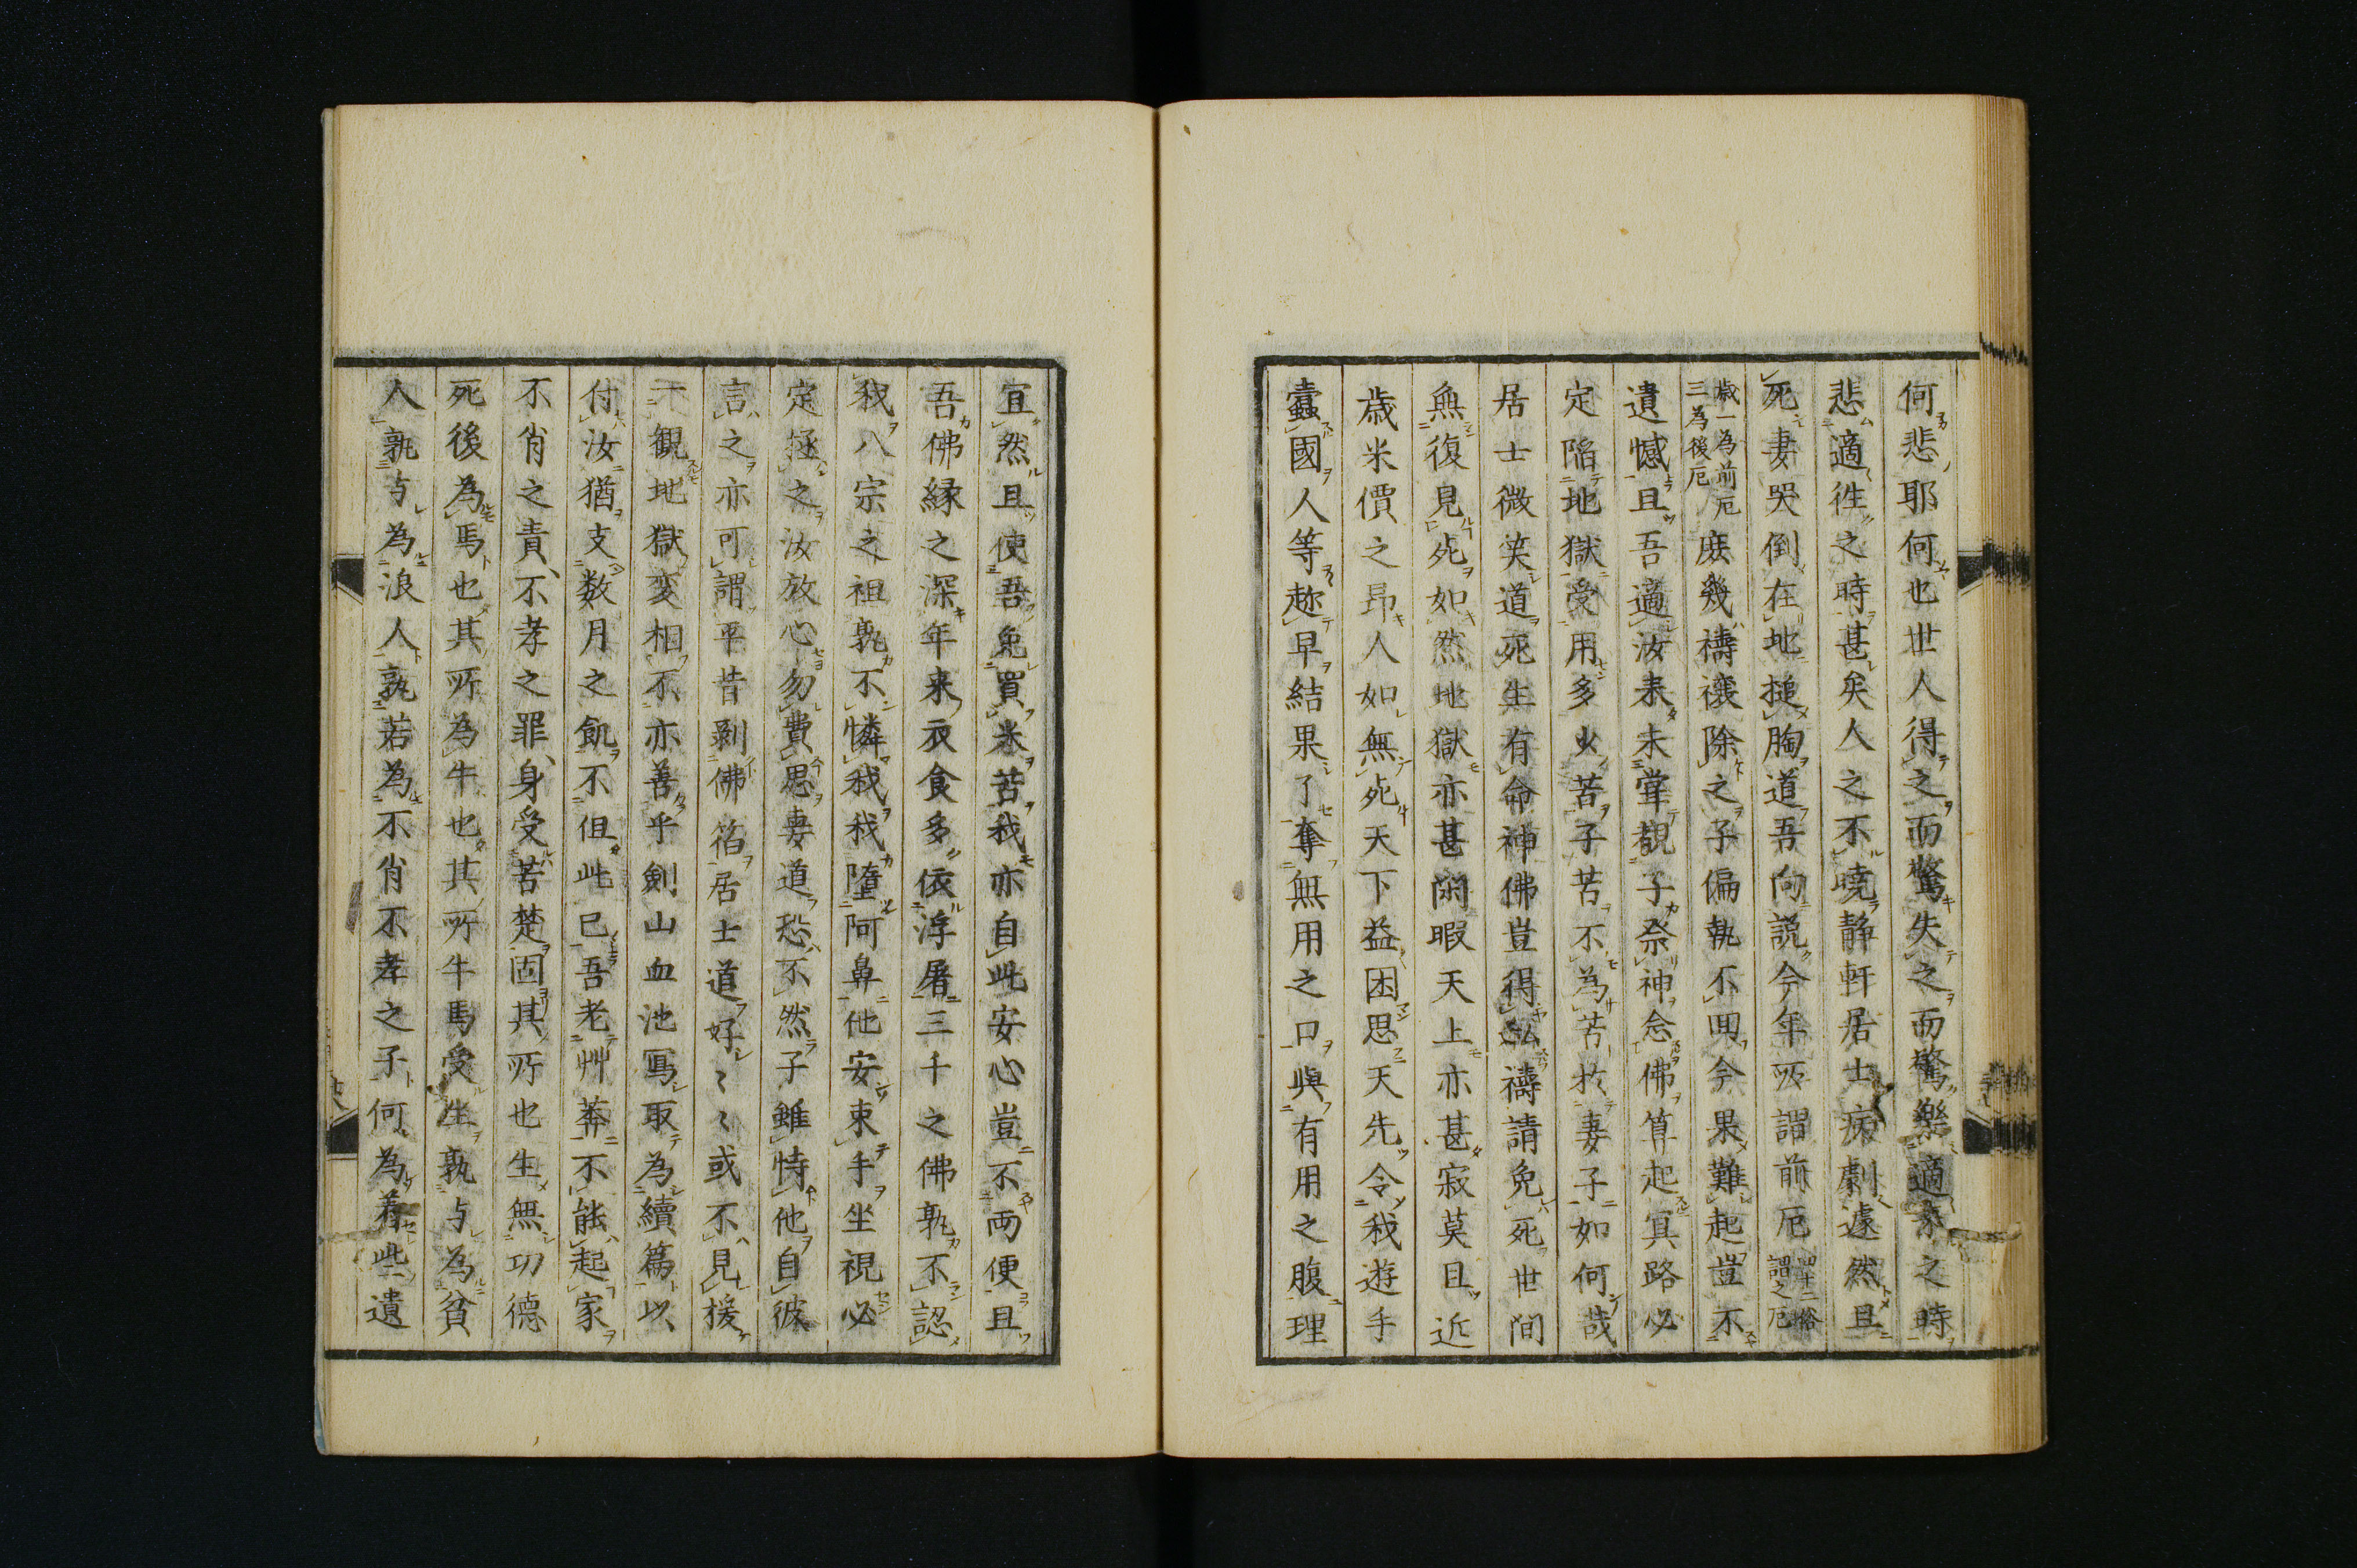 何悲耶何也世人得之而驚失之而驚樂適来之時
悲適徃之時甚矣人之不曉静軒居士病劇遽然且
死妻哭倒在地搥胸道吾向説今年所謂前厄四十二俗謂之厄
歳一為前厄三為後厄庶幾禱禳除之子偏執不聞今果難起豈不
遺憾且吾適汝来未甞覩子祭神念佛算起冥路必
定陥地獄受用多少苦子苦不為苦於妻子如何哉
居士微笑道死生有命神佛豈得私禱請免死世間
無復見死如然地獄亦甚閑暇天上亦甚寂莫且近
歳米價之昻人如無死天下益困思天先令我遊手
蠧國人等趂早結果了奪無用之口與有用之腹理
宜然且使吾免買米苦我亦自此安心豈不両便且
吾佛縁之深年来衣食多依浮屠三千之佛孰不認
我八宗之祖孰不憐我我墮阿鼻他安束手坐視必
定拯之汝放心勿費思妻道恐不然子雖恃他自彼
言之亦可謂平昔剥佛 居士道好〻〻或不見援
一観地獄変相不亦善乎劍山血池冩取為續篇以
付汝猶支数月之飢不但此已吾老艸莽不能起家
不肖之責不孝之罪身受苦楚固其所也生無功德
死後為馬也其所為牛也其所牛馬受生孰与為貧
人孰与為浪人孰若為不肖不孝之子何為着些遺